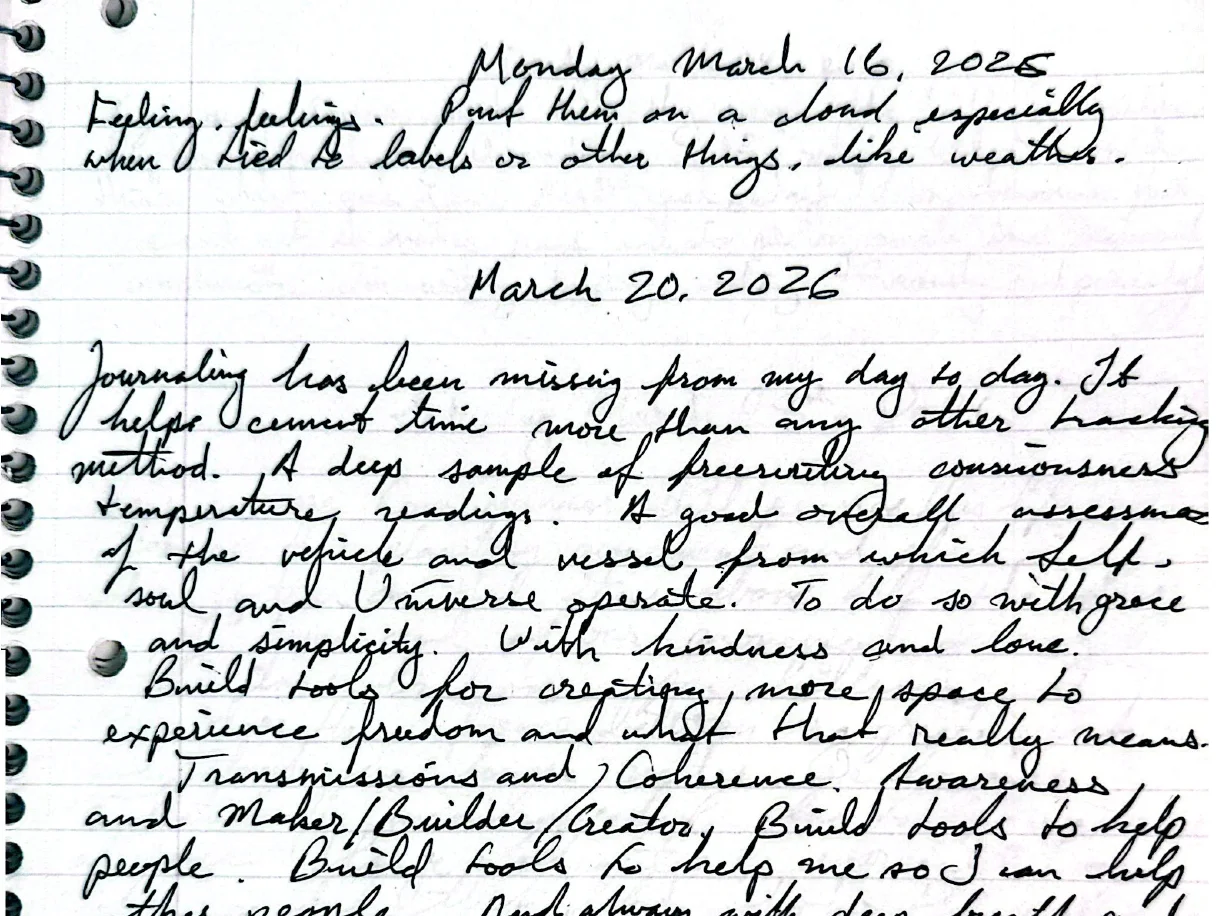 Monday March 16, 2026
Feeling, feelings. Put them on a cloud especially
when tied to labels or other things, like weather.
March 20, 2026
Journaling has been missing from my day to day. It
helps cement time more than any other tracking
method. A deep sample of freewriting consciousness
temperature readings. A good overall
of the vehicle and vessel from which Self,
soul and Universe operate. To do so with grace
and simplicity. With kindness and love.
Build tools for creating more space to
experience freedom and what that really means.
Transmissions and Coherence. Awareness
and Maker/Builder/Creator, Build tools to help
people. Build tools to help me so I can help
people. And always with deep breath and